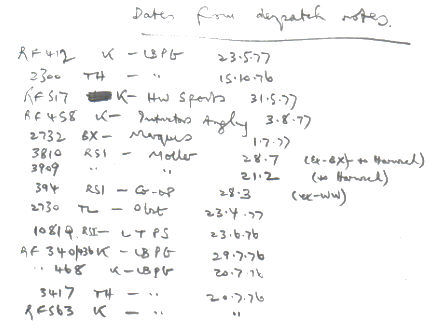 Dates from despatch notes.
RF 412 K - LBPG 23.5.77
2300 TH - " 15.10.76
RF 517 K - HW Sports 31.5.77
RF 458 K - Anglery 3.8.77
2732 BX - Marquis 1.7.77
3810 RSI - Moller 28.7 (Ex-BX) - to Harwich)
3909 " " 21.2 (to Harwich)
394 RSI - Co-op 28.3 (ex-WW)
2730 TL - 23.4.77
10819 RSI - LTPS 23.6.76
RF 340/436 K - LBPG 29.7.76
" 468 K - LBPG 20.7.76
3417 TH - " 20.7.76
RF 563 K - " "